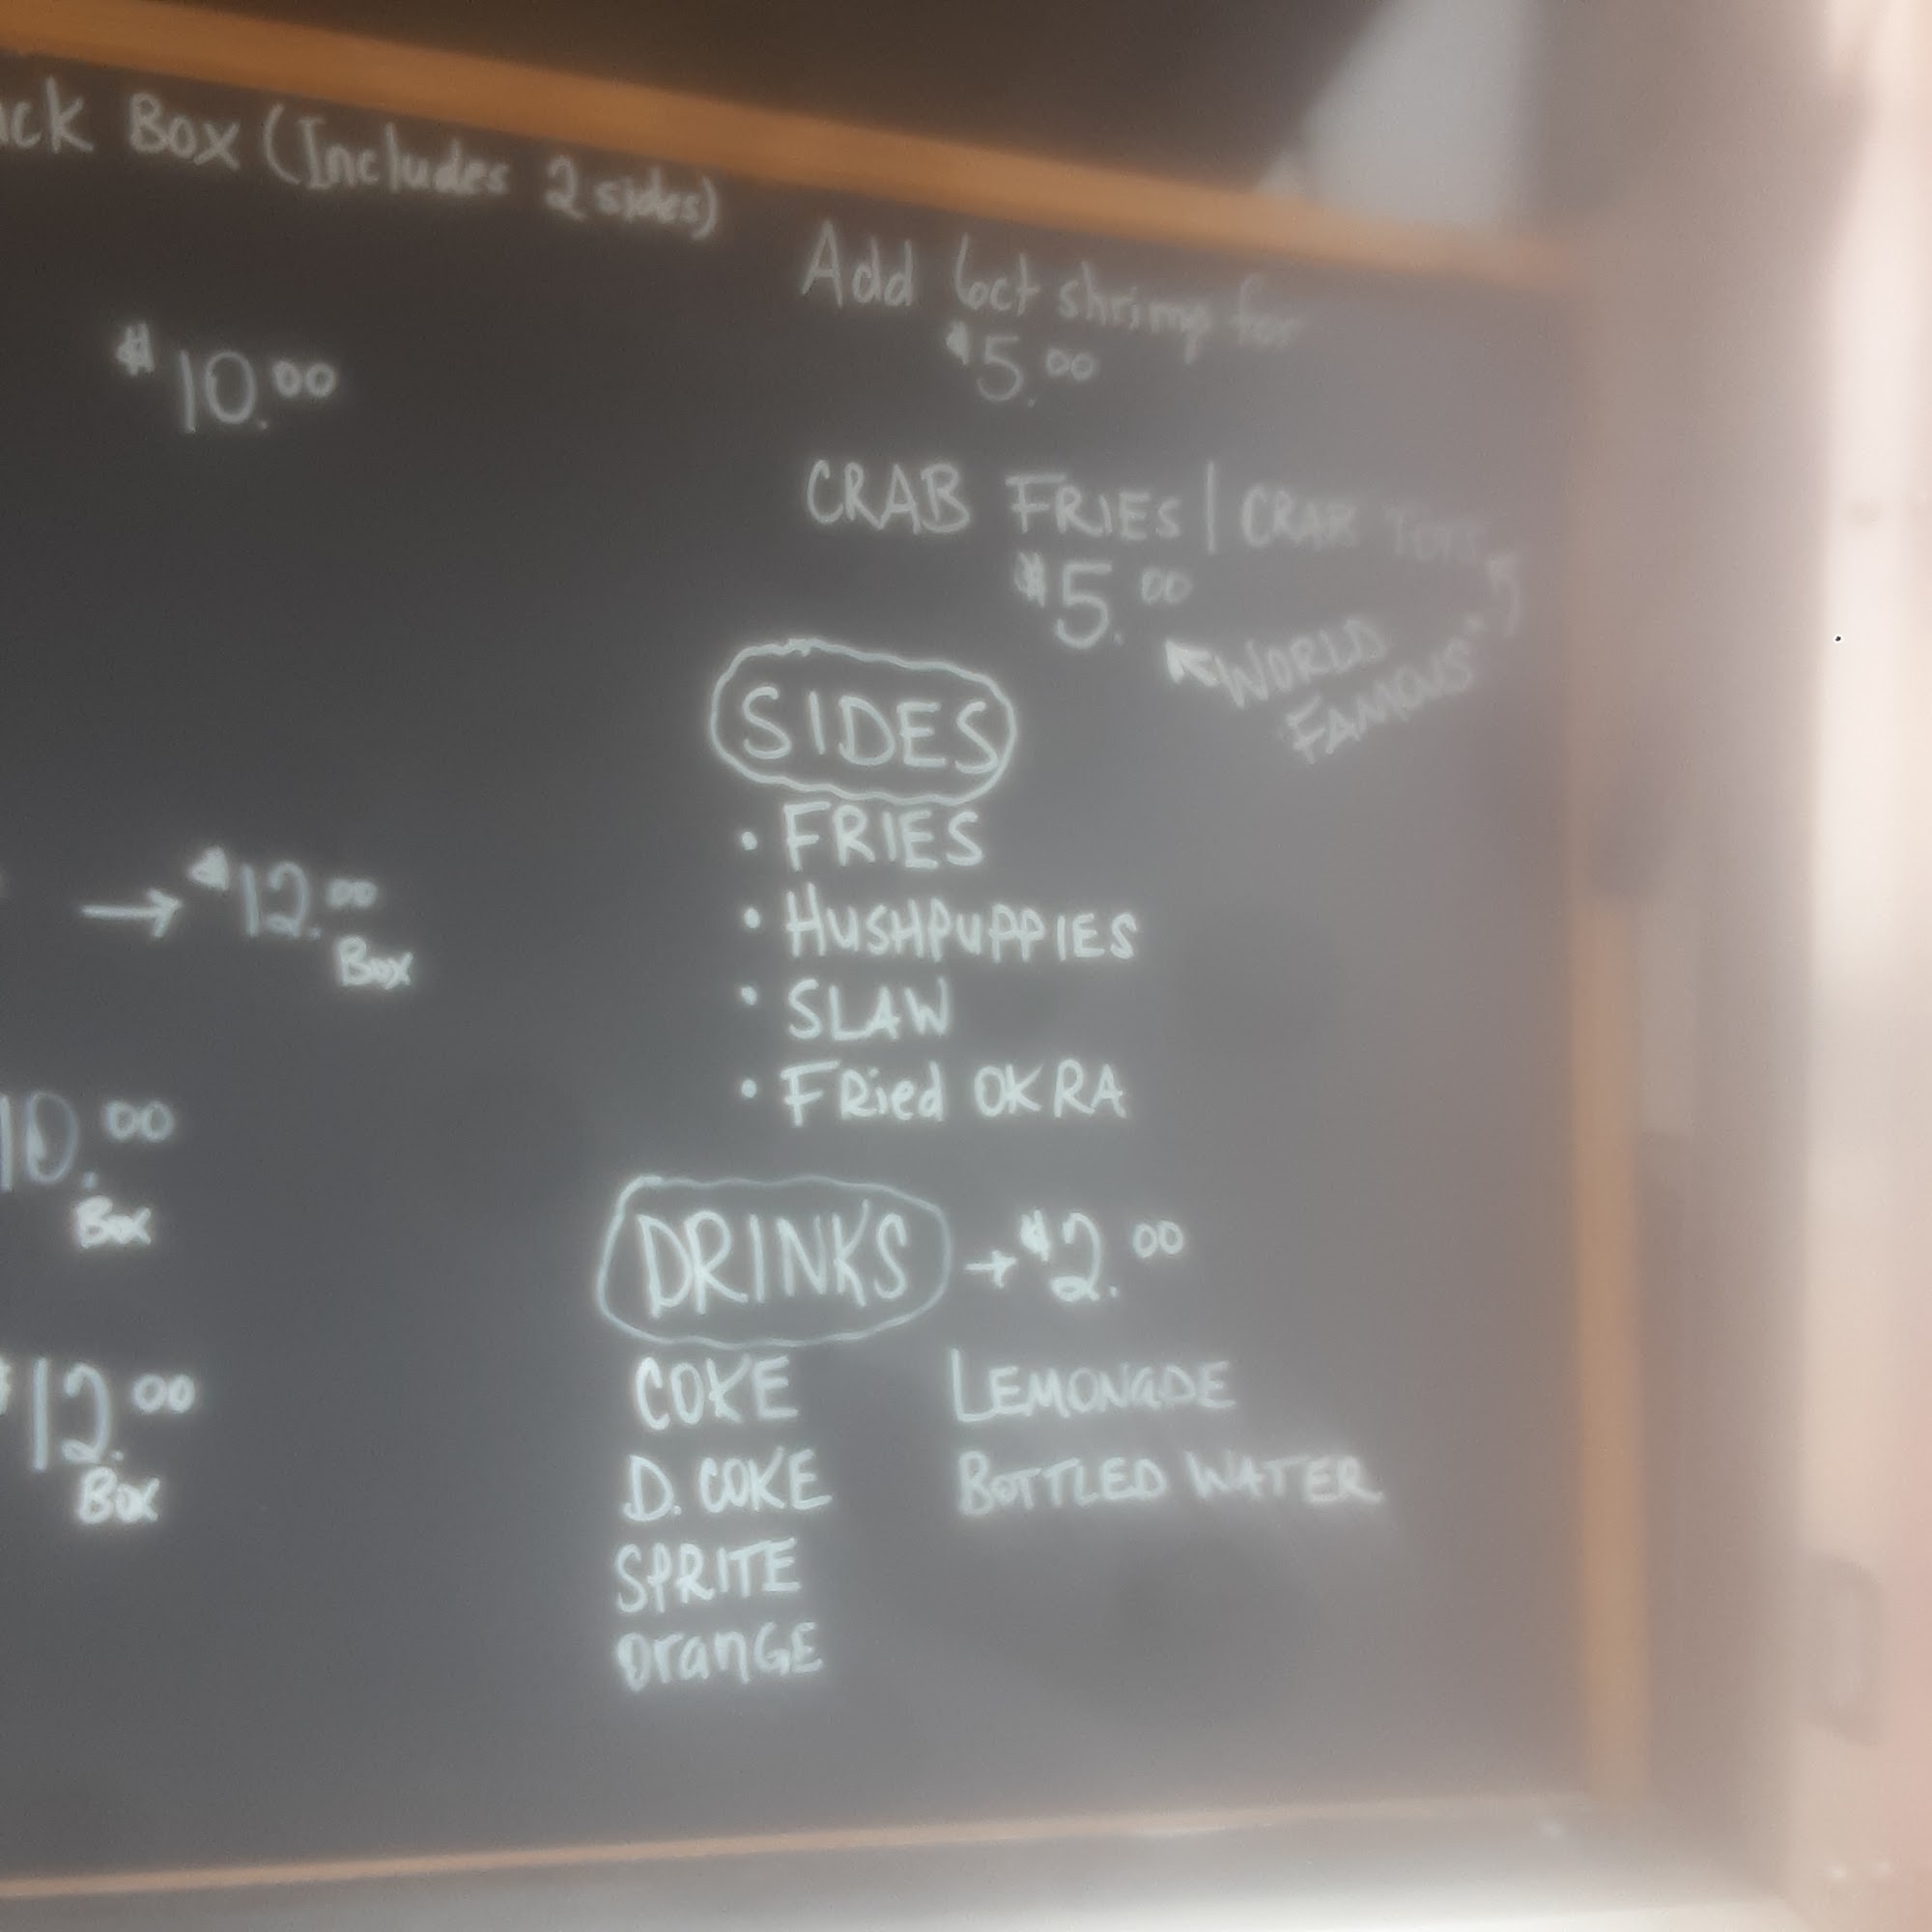 Box (Includes 2 sides)
$10.00
→ $12.00
Box
10.00
Box
$12.00
Box
Add 6ct shrimp for
$5.00
CRAB FRIES | CRAB TOTS
$5.00
WORLD
FAMOUS"
SIDES
• FRIES
• HUSHPUPPIES
• SLAW
• FRied OKRA
DRINKS → $2.00
COKE LEMONADE
D. COKE BOTTLED WATER
SPRITE
OranGE